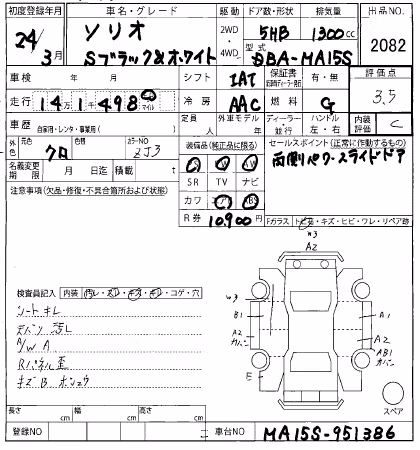 初度登録年月 車名・グレード 駆動 ドア数・形状 排気量 出品NO.
24/3月 ソリオ 2WD・4WD 5HB 1300cc
Sブラック&ホワイト 型式 DBA-MA15S 2082
車検 年 月 シフト IAT 保証書 有・無 評価点
走行 14万1千498 マイル 冷房 AAC 燃料 G 3.5
車歴 自家用・レンタ・事業用( ) 定員 人 外車モデル 年 ディーラー・並行 ハンドル 左・右 内装評価 C
外色 元色 クロ 色替 カラーNO ZJ3 装備品(純正品に限る) セールスポイント(正常に動作するもの)
両側パワースライドドア
名義変更期限 月 日迄 積載 t SR TV ナビ
注意事項(欠品・修復・不具合箇所および状態) カワ
R券 10,900円 Fガラス トビ石・キズ・ヒビ・ワレ・リペア跡
W3
A2
検査員記入 内装 汚レ・スレ・キズ・キレ・コゲ・穴
シートキレ
W3
B1 A1
A2 A2
カバン AB1
カバン
E
A/W A
Rパネル歪
キズB
スペア
長さ cm 幅 cm 高さ cm
登録NO 車台NO MA15S-951386